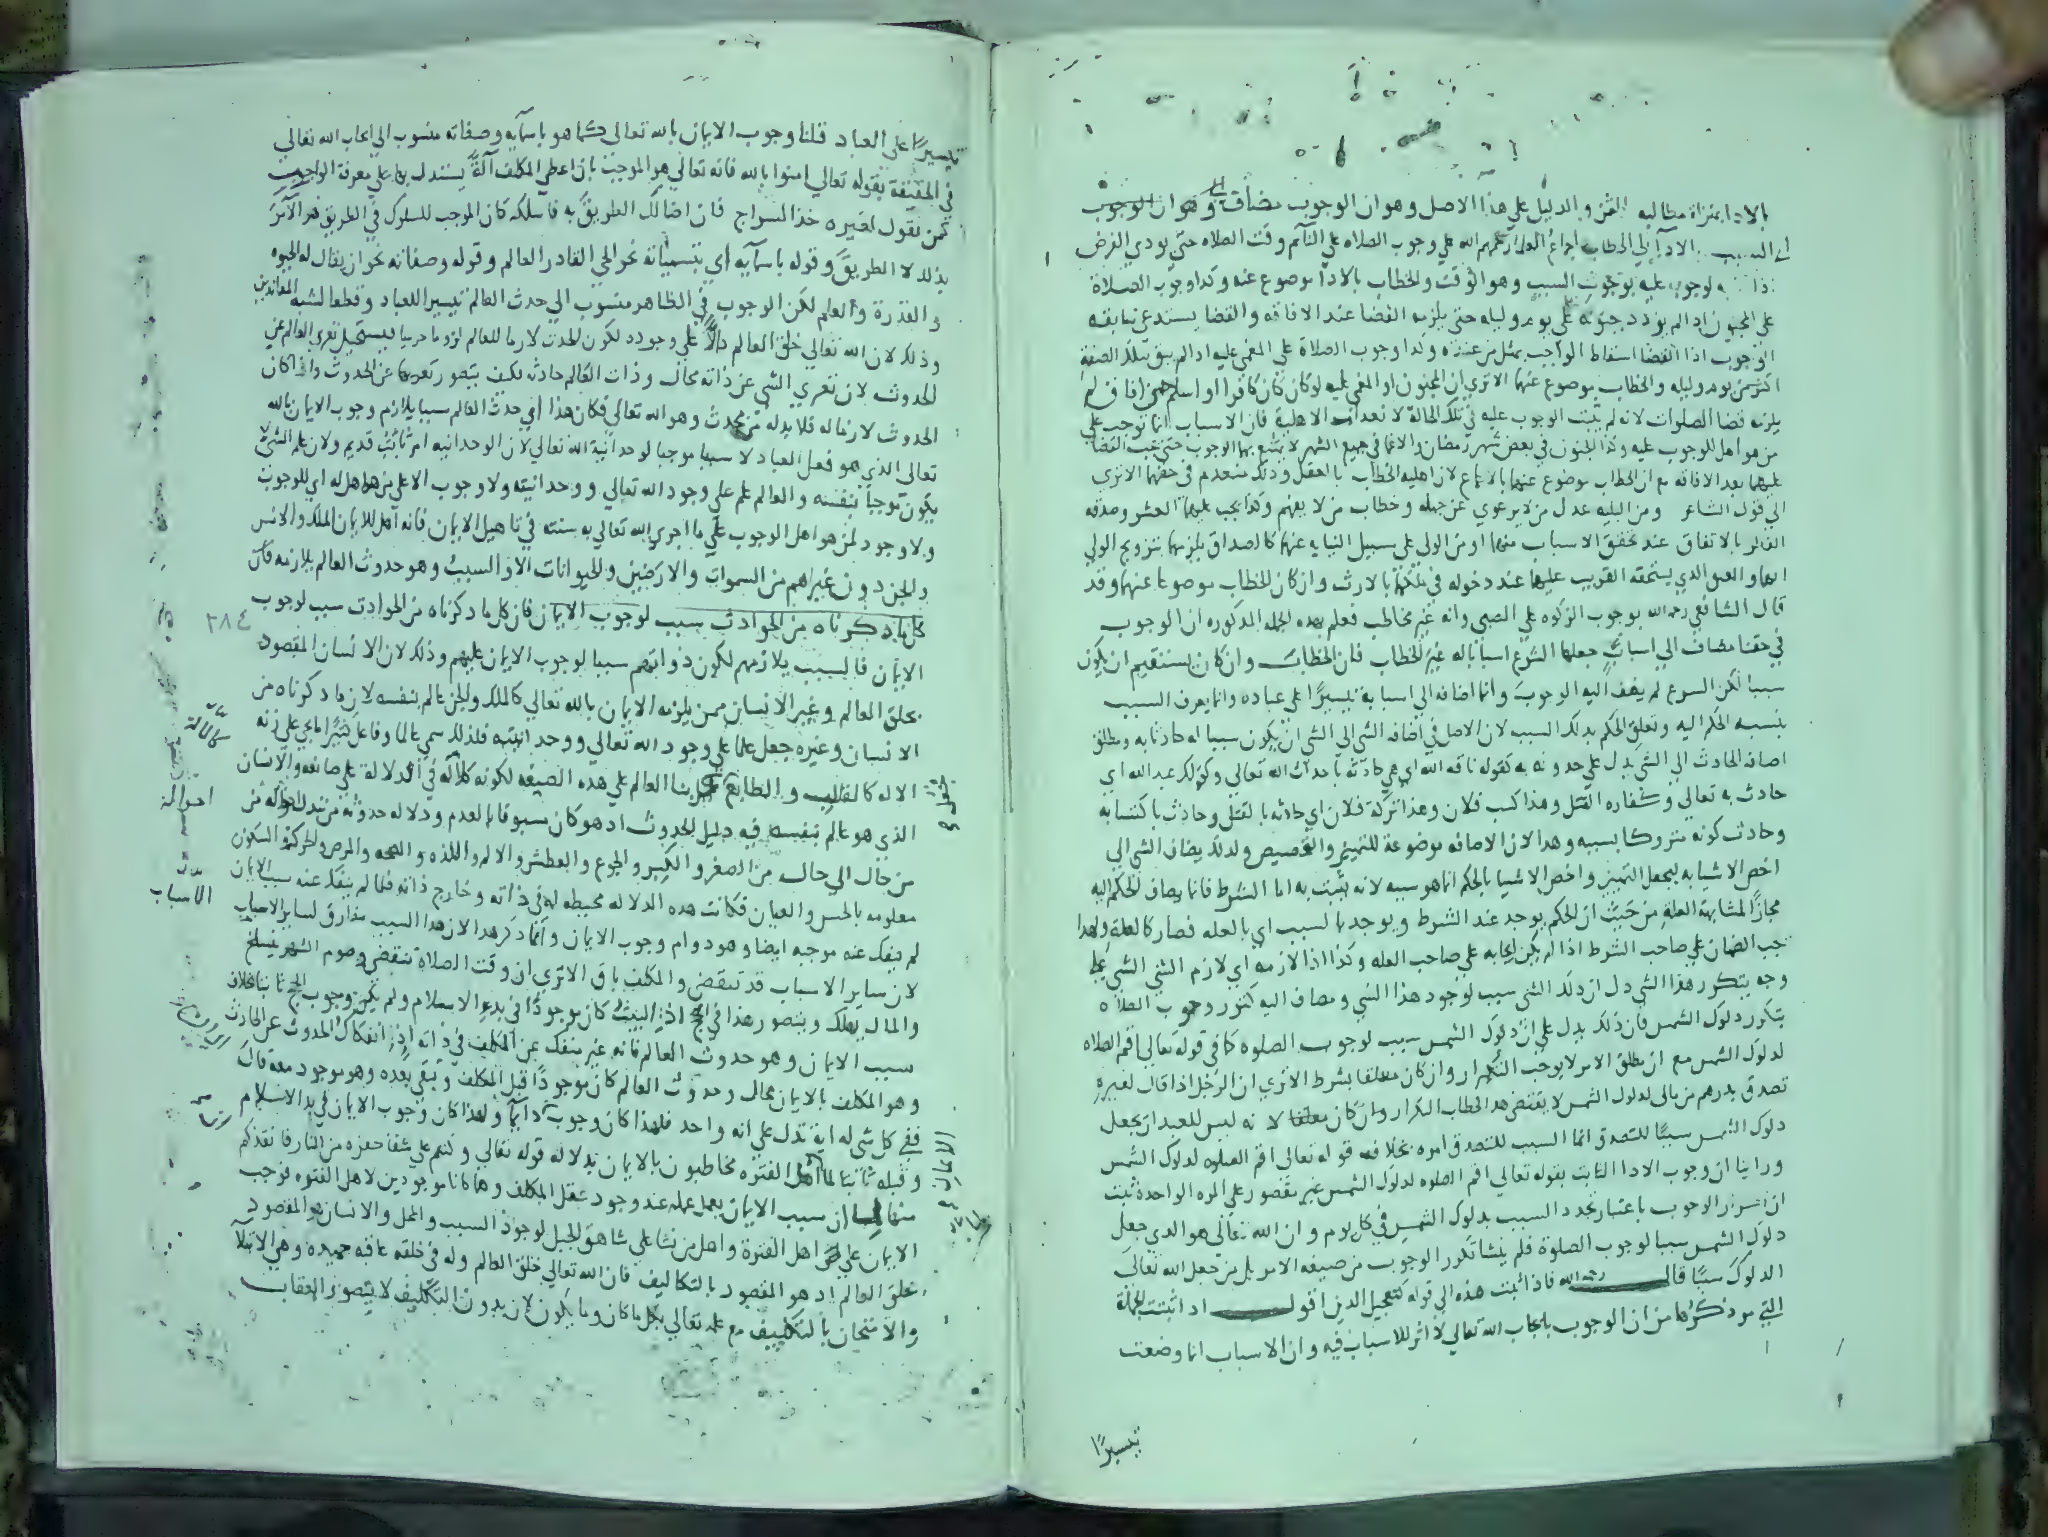 بالادا بمنزلة مطالبه الثمن والدليل على هذا الاصل وهو ان الوجوب مضاف الى
الادا الى الخطاب اجماع العلما رحمهم الله على وجوب الصلاه على النائم وقت الصلاه حتى يودي الفرض
لوجوب عليه بوجوب السبب وهو الوقت والخطاب بالادا موضوع عنه وكذا وجوب الصلاة
على المجنون اذا لم يزدد جنونه على يوم وليله حتى يلزمه القضا عند الافاقه والقضا يستدعي سابقه
الوجوب اذا القضا اسقاط الواجب بمثل من عنده وكذا وجوب الصلاة على المغمى عليه اذا لم يبق بتلك الصفة
اكثر من يوم وليله والخطاب موضوع عنهما الا ترى ان المجنون او المغمى عليه لو كان كافرا او اسلم حين افاق لم
يلزمه قضا الصلوات لانه لم يثبت الوجوب عليه في تلك الحالة لانعدام الاهلية فان الاسباب انما توجب على
من هو اهل للوجوب عليه وكذا الجنون في بعض شهر رمضان والاغما في جميع الشهر لا يمتنع بهما الوجوب حتى يجب القضا
عليهما بعد الافاقه مع ان الخطاب موضوع عنهما بالاجماع لان اهلية الخطاب بالعقل وذلك منعدم في حقهما الا ترى
الى قول الشاعر ومن البليه عذل من لا يرعوي عن جهله وخطاب من لا يفهم وكذا يجب عليهما العشر وصدقه
الفطر بالاتفاق عند تحقق الاسباب منهما او من الولي على سبيل النيابه عنهما كالصداق يلزمهما بتزويج الولي
اياهما والعتق الذي يستحقه القريب عليهما عند دخوله في ملكهما بالارث وان كان الخطاب موضوعا عنهما وقد
قال الشافعي رحمه الله بوجوب الزكوه على الصبي وانه غير مخاطب فعلم بهذه الجمله المذكوره ان الوجوب
في حقنا مضاف الى اسباب جعلها الشرع اسبابا له غير الخطاب فان الخطاب وان كان يستقيم ان يكون
سببا لكن الشرع لم يضف اليه الوجوب وانما اضافه الى اسبابه تيسيرًا على عباده وانما يعرف السبب
بنسبه الحكم اليه وتعلق الحكم بذلك السبب لان الاصل في اضافه الشي الى الشي ان يكون سببا له حادثا به ومطلق
اضافه الحادث الى الشي يدل على حدوثه به كقوله ناقه الله اي هي حادثه باحداث الله تعالى وكقولك عبد الله اي
حادث به تعالى وكفاره القتل وهذا كسب فلان وهذا تركة فلان اي حادثه بالقتل وحادث باكتسابه
وحادث كونه متروكا بسببه وهذا لان الاضافه موضوعة للتمييز والتخصيص ولذلك يضاف الشي الى
اخص الاشيا به ليحصل التمييز واخص الاشيا بالحكم انما هو سببه لانه يثبت به اما الشرط فانما يضاف الحكم اليه
مجازًا لمشابهته العلة من حيث ان الحكم يوجد عند الشرط ويوجد بالسبب اي بالعله فصار كالعلة ولهذا
يجب الضمان على صاحب الشرط اذا لم يكن ايجابه على صاحب العله وكذا اذا لازمه اي لازم الشي الشي على
وجه يتكرر هذا الشي دل ان ذلك الشي سبب لوجود هذا الشي ومضاف اليه كتكرر وجوب الصلاة
بتكرر دلوك الشمس فان ذلك يدل على ان دلوك الشمس سبب لوجوب الصلوه كما في قوله تعالى اقم الصلاه
لدلوك الشمس مع ان مطلق الامر لا يوجب التكرار وان كان معلقا بشرط الا ترى ان الرجل اذا قال لغيره
تصدق بدرهم من مالي لدلوك الشمس لا يقتضي هذا الخطاب التكرار وان كان معلقا لانه ليس للعبد ان يجعل
دلوك الشمس سببًا للتصدق انما السبب للتصدق امره بخلاف قوله تعالى اقم الصلوه لدلوك الشمس
وراينا ان وجوب الادا الثابت بقوله تعالى اقم الصلوه لدلوك الشمس غير مقصور على المره الواحدة ثبت
ان تكرار الوجوب باعتبار تجدد السبب بدلوك الشمس في كل يوم وان الله تعالى هو الذي جعل
دلوك الشمس سببا لوجوب الصلوة فلم ينشا تكرر الوجوب من صيغه الامر بل من جعل الله تعالى
الدلوك سببًا قال رحمه الله فاذا ثبتت هذه الى قوله لتعجيل الدين اقول اذا ثبتت الجملة
التي مر ذكرها من ان الوجوب بايجاب الله تعالى لا اثر للاسباب فيه وان الاسباب انما وضعت
تيسيرًا
تيسيرًا على العباد قلنا وجوب الايمان بالله تعالى كما هو باسمائه وصفاته منسوب الى ايجاب الله تعالى
في الحقيقة بقوله تعالى امنوا بالله فانه تعالى هو الموجب بان اعطى المكلف آلةً يستدل بها على معرفة الواجب
كمن يقول لغيره خذ السراج فان اضا لك الطريق به فاسلكه كان الموجب للسلوك في الطريق هو الآمر
بذلك لا الطريق وقوله باسمائه اي بتسمياته نحو الحي القادر العالم وقوله وصفاته نحو ان يقال له الحيوه
والقدرة والعلم لكن الوجوب في الظاهر منسوب الى حدث العالم تيسيرا للعباد وقطعا لشبه المعاندين
وذلك لان الله تعالى خلق العالم دالًا على وجوده لكون الحدث لازما للعالم لزوما حسيا فيستحيل تعري العالم عن
الحدوث لان تعري الشي عن ذاته محال وذات العالم حادثه فكيف يتصور تعريها عن الحدوث واذا كان
الحدوث لازما له فلا بد له من محدث وهو الله تعالى فكان هذا اي حدث العالم سببا يلازم وجوب الايمان بالله
تعالى الذي هو فعل العباد لا سببا موجبا لوحدانية الله تعالى لان الوحدانيه امر ثابت قديم ولان علم الشي لا
يكون موجبا بنفسه والعالم علم على وجود الله تعالى ووحدانيته ولا وجوب الا على من هو اهل له اي للوجوب
ولا وجود لمن هو اهل الوجوب على ما اجرى الله تعالى به سنته في تاهيل الايمان فانه اهل للايمان الملك والانس
والجن دون غيرهم من السموات والارضين والحيوانات الا والسبب وهو حدوث العالم يلازمه فان
كل ما ذكرناه من الحوادث سبب لوجوب الايمان فان كل ما ذكرناه من الحوادث سبب لوجوب
٢٨٤
الايمان فالسبب يلازمهم لكون ذواتهم سببا لوجوب الايمان عليهم وذلك لان الانسان المقصود
بخلق العالم وغير الانسان ممن يلزمه الايمان بالله تعالى كالملك والجن عالم بنفسه لان ما ذكرناه من
الانسان وغيره جعل علما على وجود الله تعالى ووحدانيته فلذلك سمي عالما وفاعل كثيرًا ما يجي على زنه
الاله كالقالب والطابع بنا العالم على هذه الصيغه لكونه كالآله في الدلالة على صانعه والانسان
كالآلة
الذي هو عالم بنفسه فيه دليل الحدوث اذ هو كان مسبوقا بالعدم ودلاله حدوثه من تبدل احواله من
احواله
من حال الى حال من الصغر والكبر والجوع والعطش والالم واللذه والصحه والمرض والحركة والسكون
معلومه بالحس والعيان فكانت هذه الدلاله محيطه له في ذاته وخارج ذاته فلما لم ينفك عنه سبب الايمان
لم ينفك عنه موجبه ايضا وهو دوام وجوب الايمان وانما ذكر هذا لان هذا السبب مفارق لساير الاسباب
الاسباب
لان ساير الاسباب قد تنقضي والمكلف باق الا ترى ان وقت الصلاة تنقضي وصوم الشهر ينسلخ
والمال يهلك ويتصور هذا في الحج اذ البيت كان موجودًا في بدء الاسلام ولم يكن وجوب الحج ثابتا بخلاف
سبب الايمان وهو حدوث العالم فانه غير منفك عن المكلف في ذاته اذ انفكاك الحدوث عن الحادث
وهو المكلف بالايمان محال وحدوث العالم كان موجودًا قبل المكلف ويبقى بعده وهو موجود معه قال
ففي كل شي له اية تدل على انه واحد فلهذا كان وجوبه دائما ولهذا كان وجوب الايمان في بدء الاسلام
وقبله ثابتا لما ان اهل الفترة مخاطبون بالايمان بدلاله قوله تعالى وكنتم على شفا حفره من النار فانقذكم
منها لما ان سبب الايمان يعمل عمله عند وجود عقل المكلف وهما كانا موجودين لاهل الفتره فوجب
الايمان على اهل الفترة واهل من نشا على شاهق الجبل لوجود السبب والمحل والانسان هو المقصود
بخلق العالم اذ هو المقصود بالتكاليف فان الله تعالى خلق العالم وله في خلقه عاقبه حميده وهي الابتلا
والامتحان بالتكليف مع علمه تعالى بكل ما كان وما يكون لان بدون التكليف لا يتصور العقاب